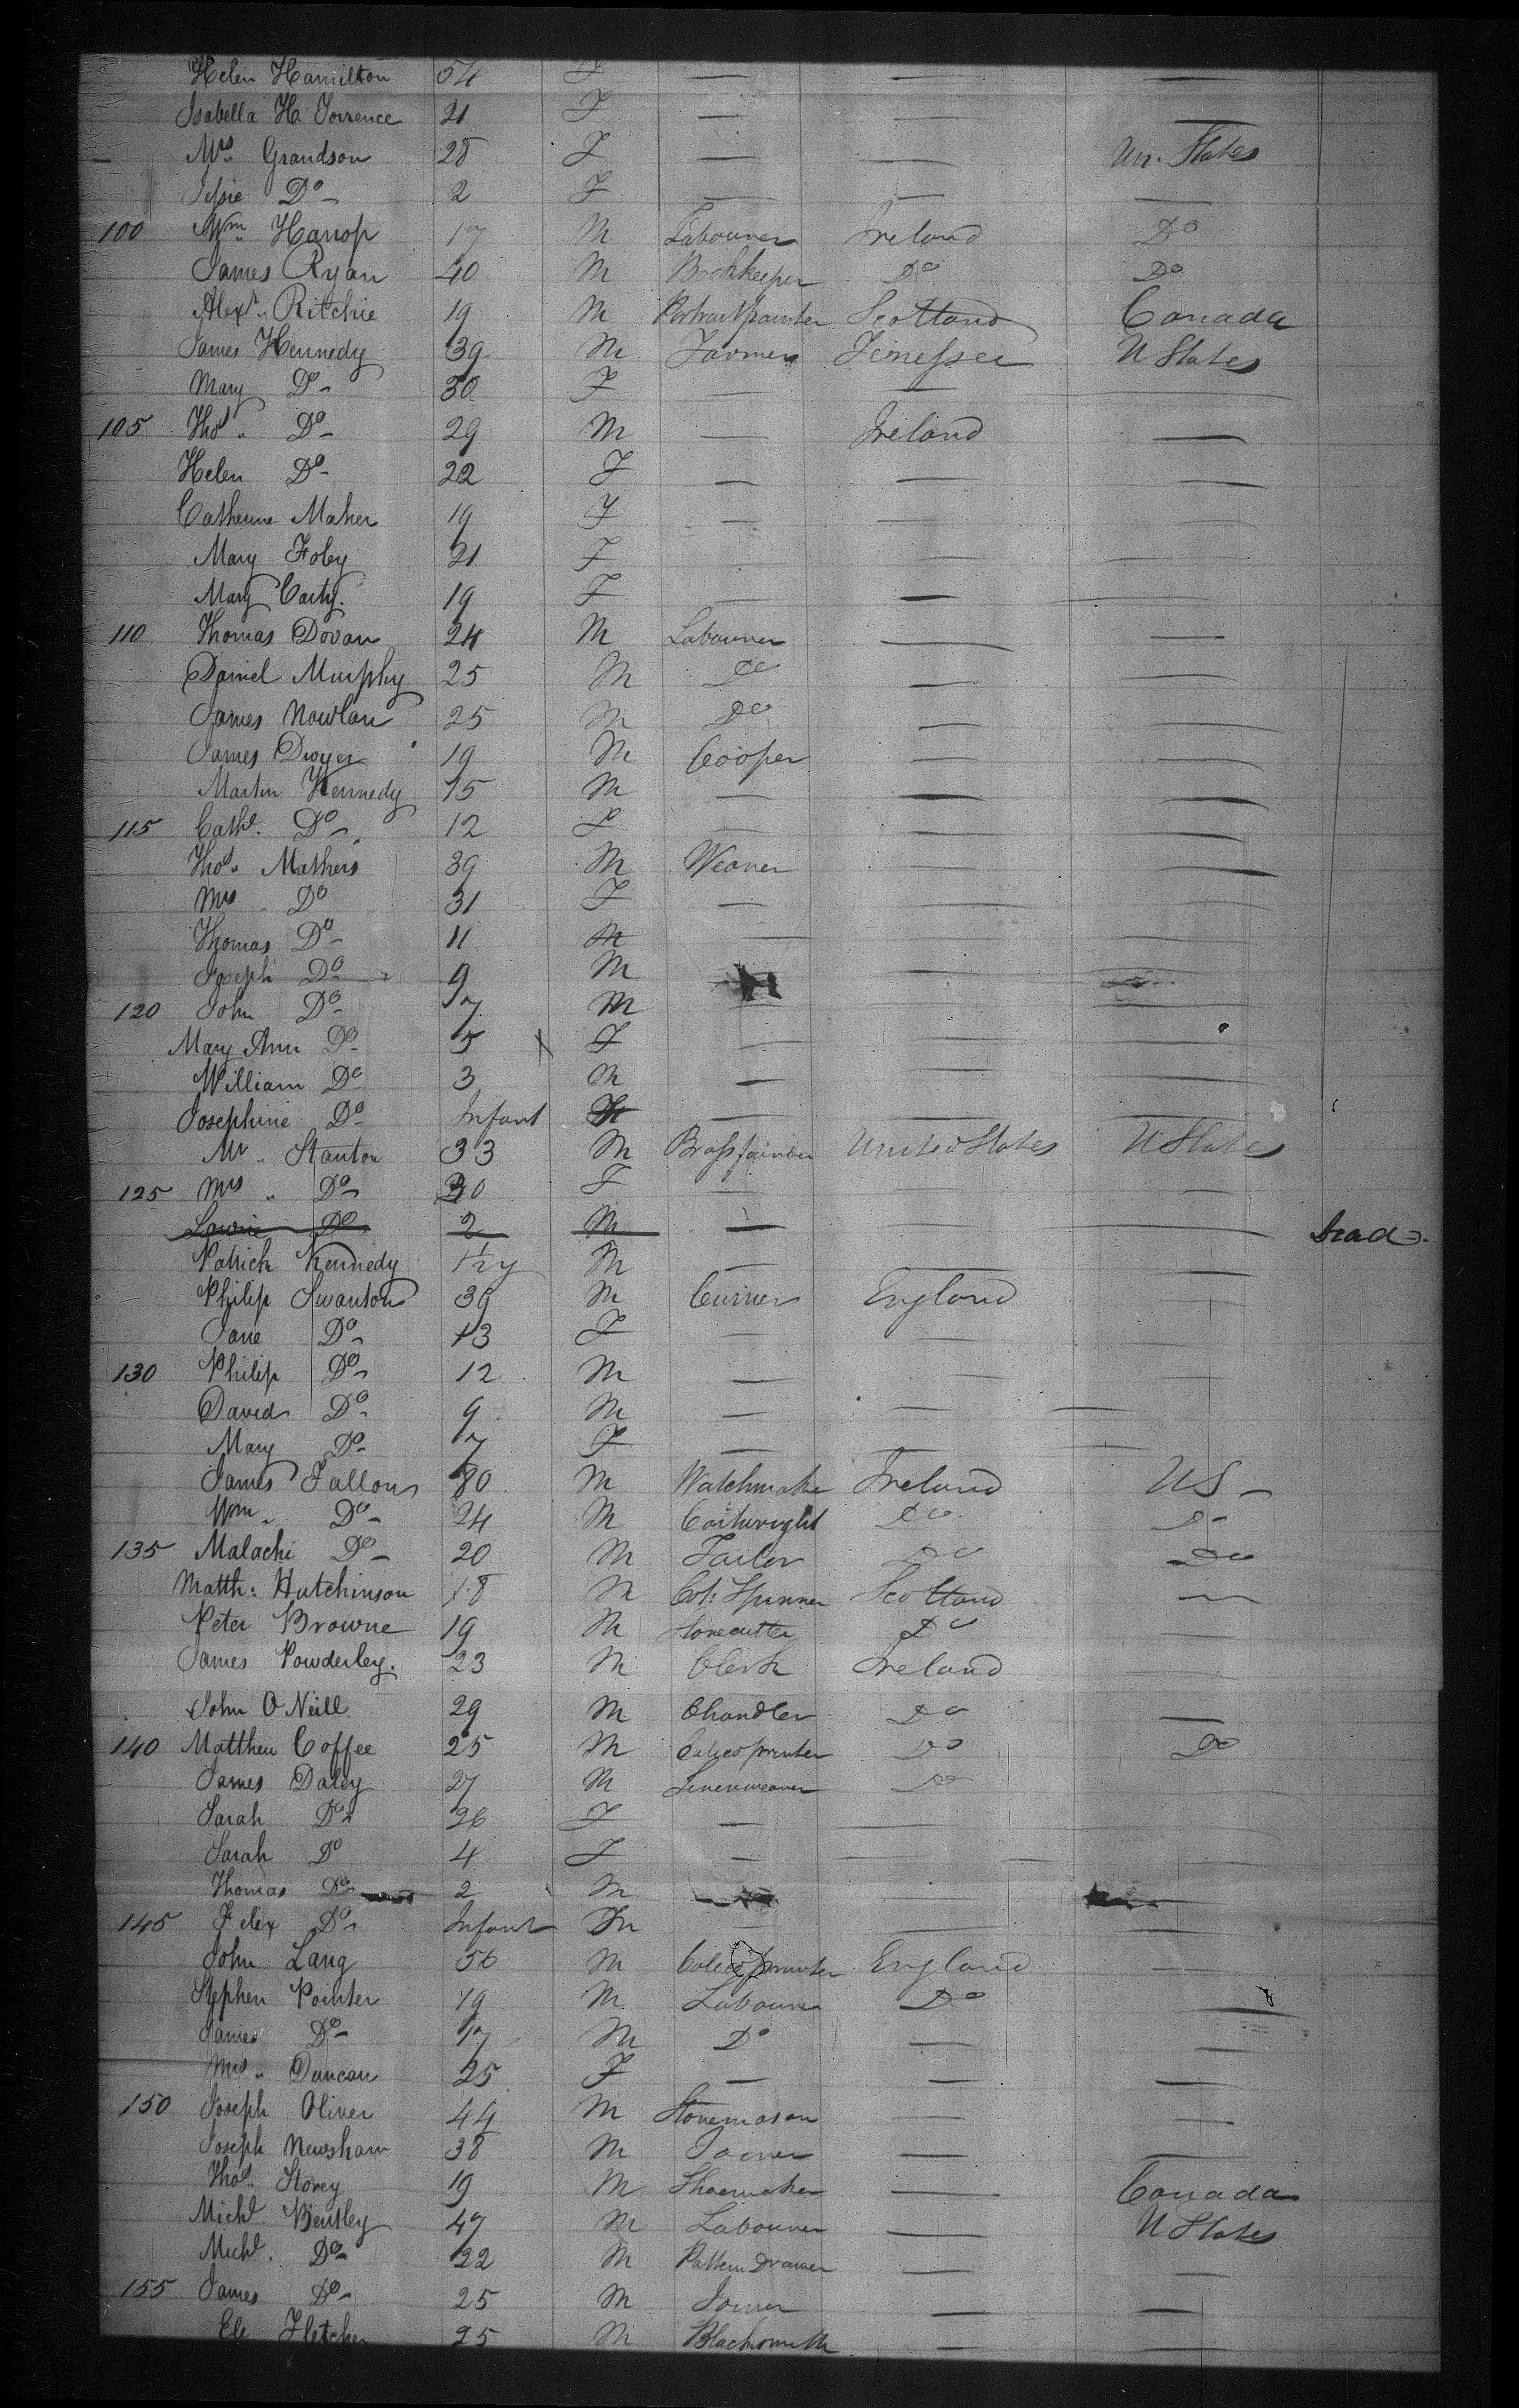 Helen Hamilton 54 F — — —
Isabella H. Torrence 21 F — — —
Mrs. Grandson 28 F — — Un. States
Jessie Do 2 F — — —
100 Wm. Hanop 17 M Labourer Ireland Do
James Ryan 40 M Bookkeeper Do Do
Alexr. Ritchie 19 M Portraitpainter Scotland Canada
James Kennedy 39 M Farmer U States
Mary Do 30 F — — —
105 Thos. Do 29 M — Ireland —
Helen Do 22 F — — —
Catherine Maher 19 F — — —
Mary Foley 21 F — —
Mary Carty. 19 F — — —
110 Thomas Dovan 24 M Labourer — —
Daniel Murphy 25 M Do — —
James Nowlan 25 M Do — —
James Dwyer 19 M Cooper — —
Martin Kennedy 15 M — — —
115 Cathe. Do 12 F — — —
Thos. Mathers 39 M Weaver — —
Mrs Do 31 F — — —
Thomas Do 11 M — — —
Joseph Do 9 M — —
120 John Do 7 M — — —
Mary Ann Do 5 F — — —
William Do 3 M — — —
Josephine Do Infant — — —
Mr. Stanton 33 M Brassfounder United States U States
125 Mrs. Do 30 F — — —
Lowrie Do 2 M — — — Dead
Patrick Kennedy 1½ y M — — —
Philip Swanton 39 M Currier England —
Jane Do 13 F — — —
130 Philip Do 12 M — — —
David Do 9 M — — —
Mary Do 7 F — — —
James Fallon 80 M Watchmaker Ireland US —
Wm. Do 24 M Cartwright Do Do
135 Malachi Do 20 M Tailor Do Do
Matth: Hutchinson 18 M Cot: Spinner Scotland —
Peter Browne 19 M Stonecutter Do —
James Powderley. 23 M Clerk Ireland —
John O Neill 29 M Chandler Do —
140 Matthew Coffee 25 M Calicoprinter Do Do
James Daley 27 M Linenweaver Do —
Sarah Do 26 F — — —
Sarah Do 4 F — — —
Thomas Do 2 M — —
145 Felix Do Infant M — — —
John Lang 56 M Calicoprinter England —
Stephen Pointer 19 M Labourer Do —
James Do 17 M Do — —
Mrs. Duncan 25 F — — —
150 Joseph Oliver 44 M Stonemason — —
Joseph Newsham 38 M Joiner — —
Thos. Storey 19 M Shoemaker — Canada
Michl. Bentley 47 M Labourer — U States
Michl. Do 22 M Pattern Drawer — —
155 James Do 25 M Joiner — —
Ele Fletcher 25 M Blacksmith — —